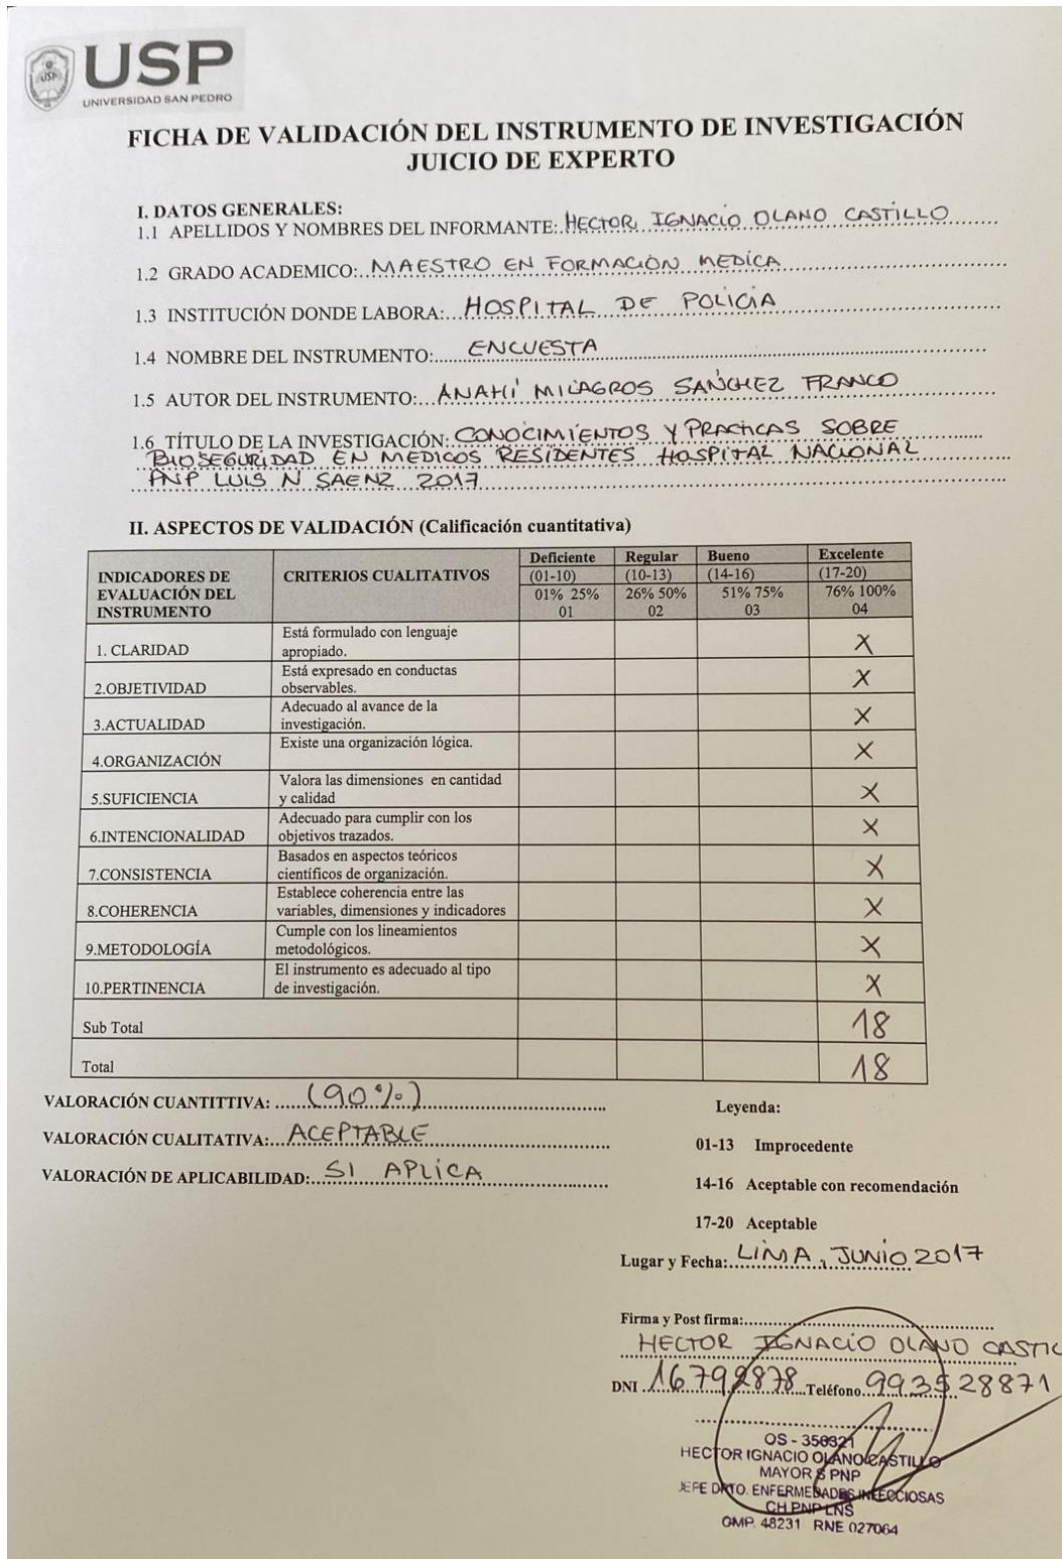 USP
UNIVERSIDAD SAN PEDRO
FICHA DE VALIDACIÓN DEL INSTRUMENTO DE INVESTIGACIÓN
JUICIO DE EXPERTO
I. DATOS GENERALES:
1.1 APELLIDOS Y NOMBRES DEL INFORMANTE: HECTOR IGNACIO OLANO CASTILLO
1.2 GRADO ACADEMICO: MAESTRO EN FORMACION MEDICA
1.3 INSTITUCIÓN DONDE LABORA: HOSPITAL DE POLICIA
1.4 NOMBRE DEL INSTRUMENTO: ENCUESTA
1.5 AUTOR DEL INSTRUMENTO: ANAHÍ MILAGROS SANCHEZ FRANCO
1.6 TÍTULO DE LA INVESTIGACIÓN: CONOCIMIENTOS Y PRACTICAS SOBRE
BIOSEGURIDAD EN MEDICOS RESIDENTES HOSPITAL NACIONAL
PNP LUIS N SAENZ 2017
II. ASPECTOS DE VALIDACIÓN (Calificación cuantitativa)
INDICADORES DE EVALUACIÓN DEL INSTRUMENTO CRITERIOS CUALITATIVOS Deficiente Regular Bueno Excelente
(01-10) (10-13) (14-16) (17-20)
01% 25% 26% 50% 51% 75% 76% 100%
01 02 03 04
1. CLARIDAD Está formulado con lenguaje apropiado. X
2.OBJETIVIDAD Está expresado en conductas observables. X
3.ACTUALIDAD Adecuado al avance de la investigación. X
4.ORGANIZACIÓN Existe una organización lógica. X
5.SUFICIENCIA Valora las dimensiones en cantidad y calidad X
6.INTENCIONALIDAD Adecuado para cumplir con los objetivos trazados. X
7.CONSISTENCIA Basados en aspectos teóricos científicos de organización. X
8.COHERENCIA Establece coherencia entre las variables, dimensiones y indicadores X
9.METODOLOGÍA Cumple con los lineamientos metodológicos. X
10.PERTINENCIA El instrumento es adecuado al tipo de investigación. X
Sub Total 18
Total 18
VALORACIÓN CUANTITTIVA: (90%)
VALORACIÓN CUALITATIVA: ACEPTABLE
VALORACIÓN DE APLICABILIDAD: SI APLICA
Leyenda:
01-13 Improcedente
14-16 Aceptable con recomendación
17-20 Aceptable
Lugar y Fecha: LIMA, JUNIO 2017
Firma y Post firma:
HECTOR IGNACIO OLANO CASTIL
DNI 16792878 Teléfono 993528871
OS - 350321
HECTOR IGNACIO OLANO CASTILLO
MAYOR S PNP
JEFE DPTO. ENFERMEDADES INFECCIOSAS
CH PNP LNS
CMP. 48231 RNE 027064